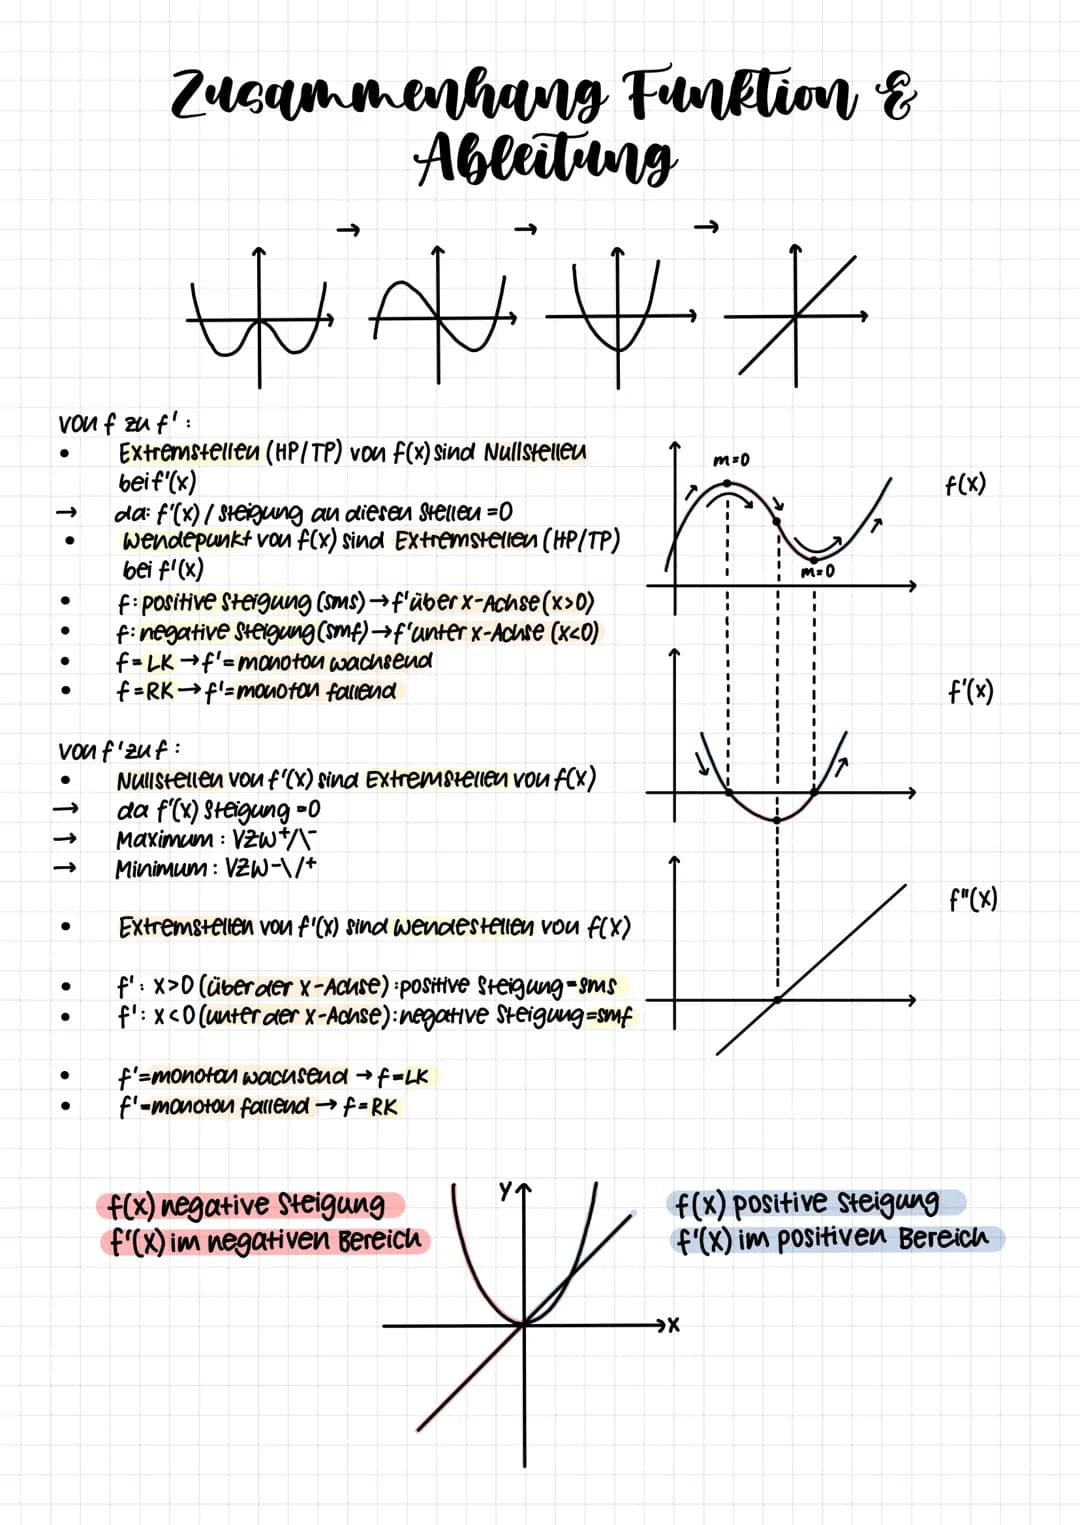 Zusammenhang Funktion &
Ableitung
→ → →
von f zu f' :
• Extremstellen (HP/TP) von f(x) sind Nullstellen
bei f'(x)
→ da: f'(x) / Steigung an diesen Stellen =0
• Wendepunkt von f(x) sind Extremstellen (HP/TP)
bei f'(x)
• f: positive Steigung (sms) → f' über x-Achse (x>0)
• f: negative Steigung (smf) → f' unter x-Achse (x<0)
• f = LK → f' = monoton wachsend
• f = RK → f' = monoton fallend
m=0
f(x)
m=0
f'(x)
f''(x)
von f' zu f :
• Nullstellen von f'(x) sind Extremstellen von f(x)
→ da f'(x) Steigung =0
→ Maximum : VZW +/\-
→ Minimum : VZW -\/+
• Extremstellen von f'(x) sind Wendestellen von f(x)
• f' : x>0 (über der x-Achse) : positive Steigung = sms
• f' : x<0 (unter der x-Achse) : negative Steigung = smf
• f' = monoton wachsend → f = LK
• f' = monoton fallend → f = RK
f(x) negative Steigung
f'(x) im negativen Bereich
y
x
f(x) positive Steigung
f'(x) im positiven Bereich